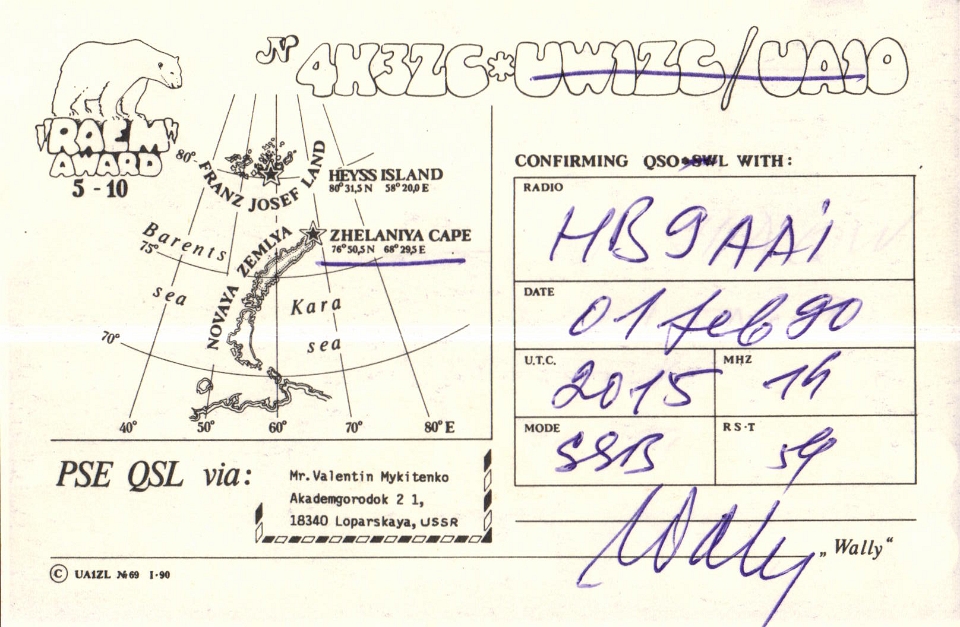 4K3ZC*UW1ZC/UA1O
RAEM
AWARD
5 - 10
80°
FRANZ JOSEF LAND
HEYSS ISLAND
80°31,5 N 58°20,0 E
ZHELANIYA CAPE
76°50,5 N 68°29,5 E
Barents
75°
sea
NOVAYA ZEMLYA
Kara
sea
70°
40° 50° 60° 70° 80° E
CONFIRMING QSO*SWL WITH:
RADIO
HB9AAi
DATE
01 feb 90
U.T.C.
2015
MHZ
14
MODE
SSB
R S·T
59
PSE QSL via:
Mr. Valentin Mykitenko
Akademgorodok 2 1,
18340 Loparskaya, USSR
Wally
„Wally“
© UA1ZL №69 I·90